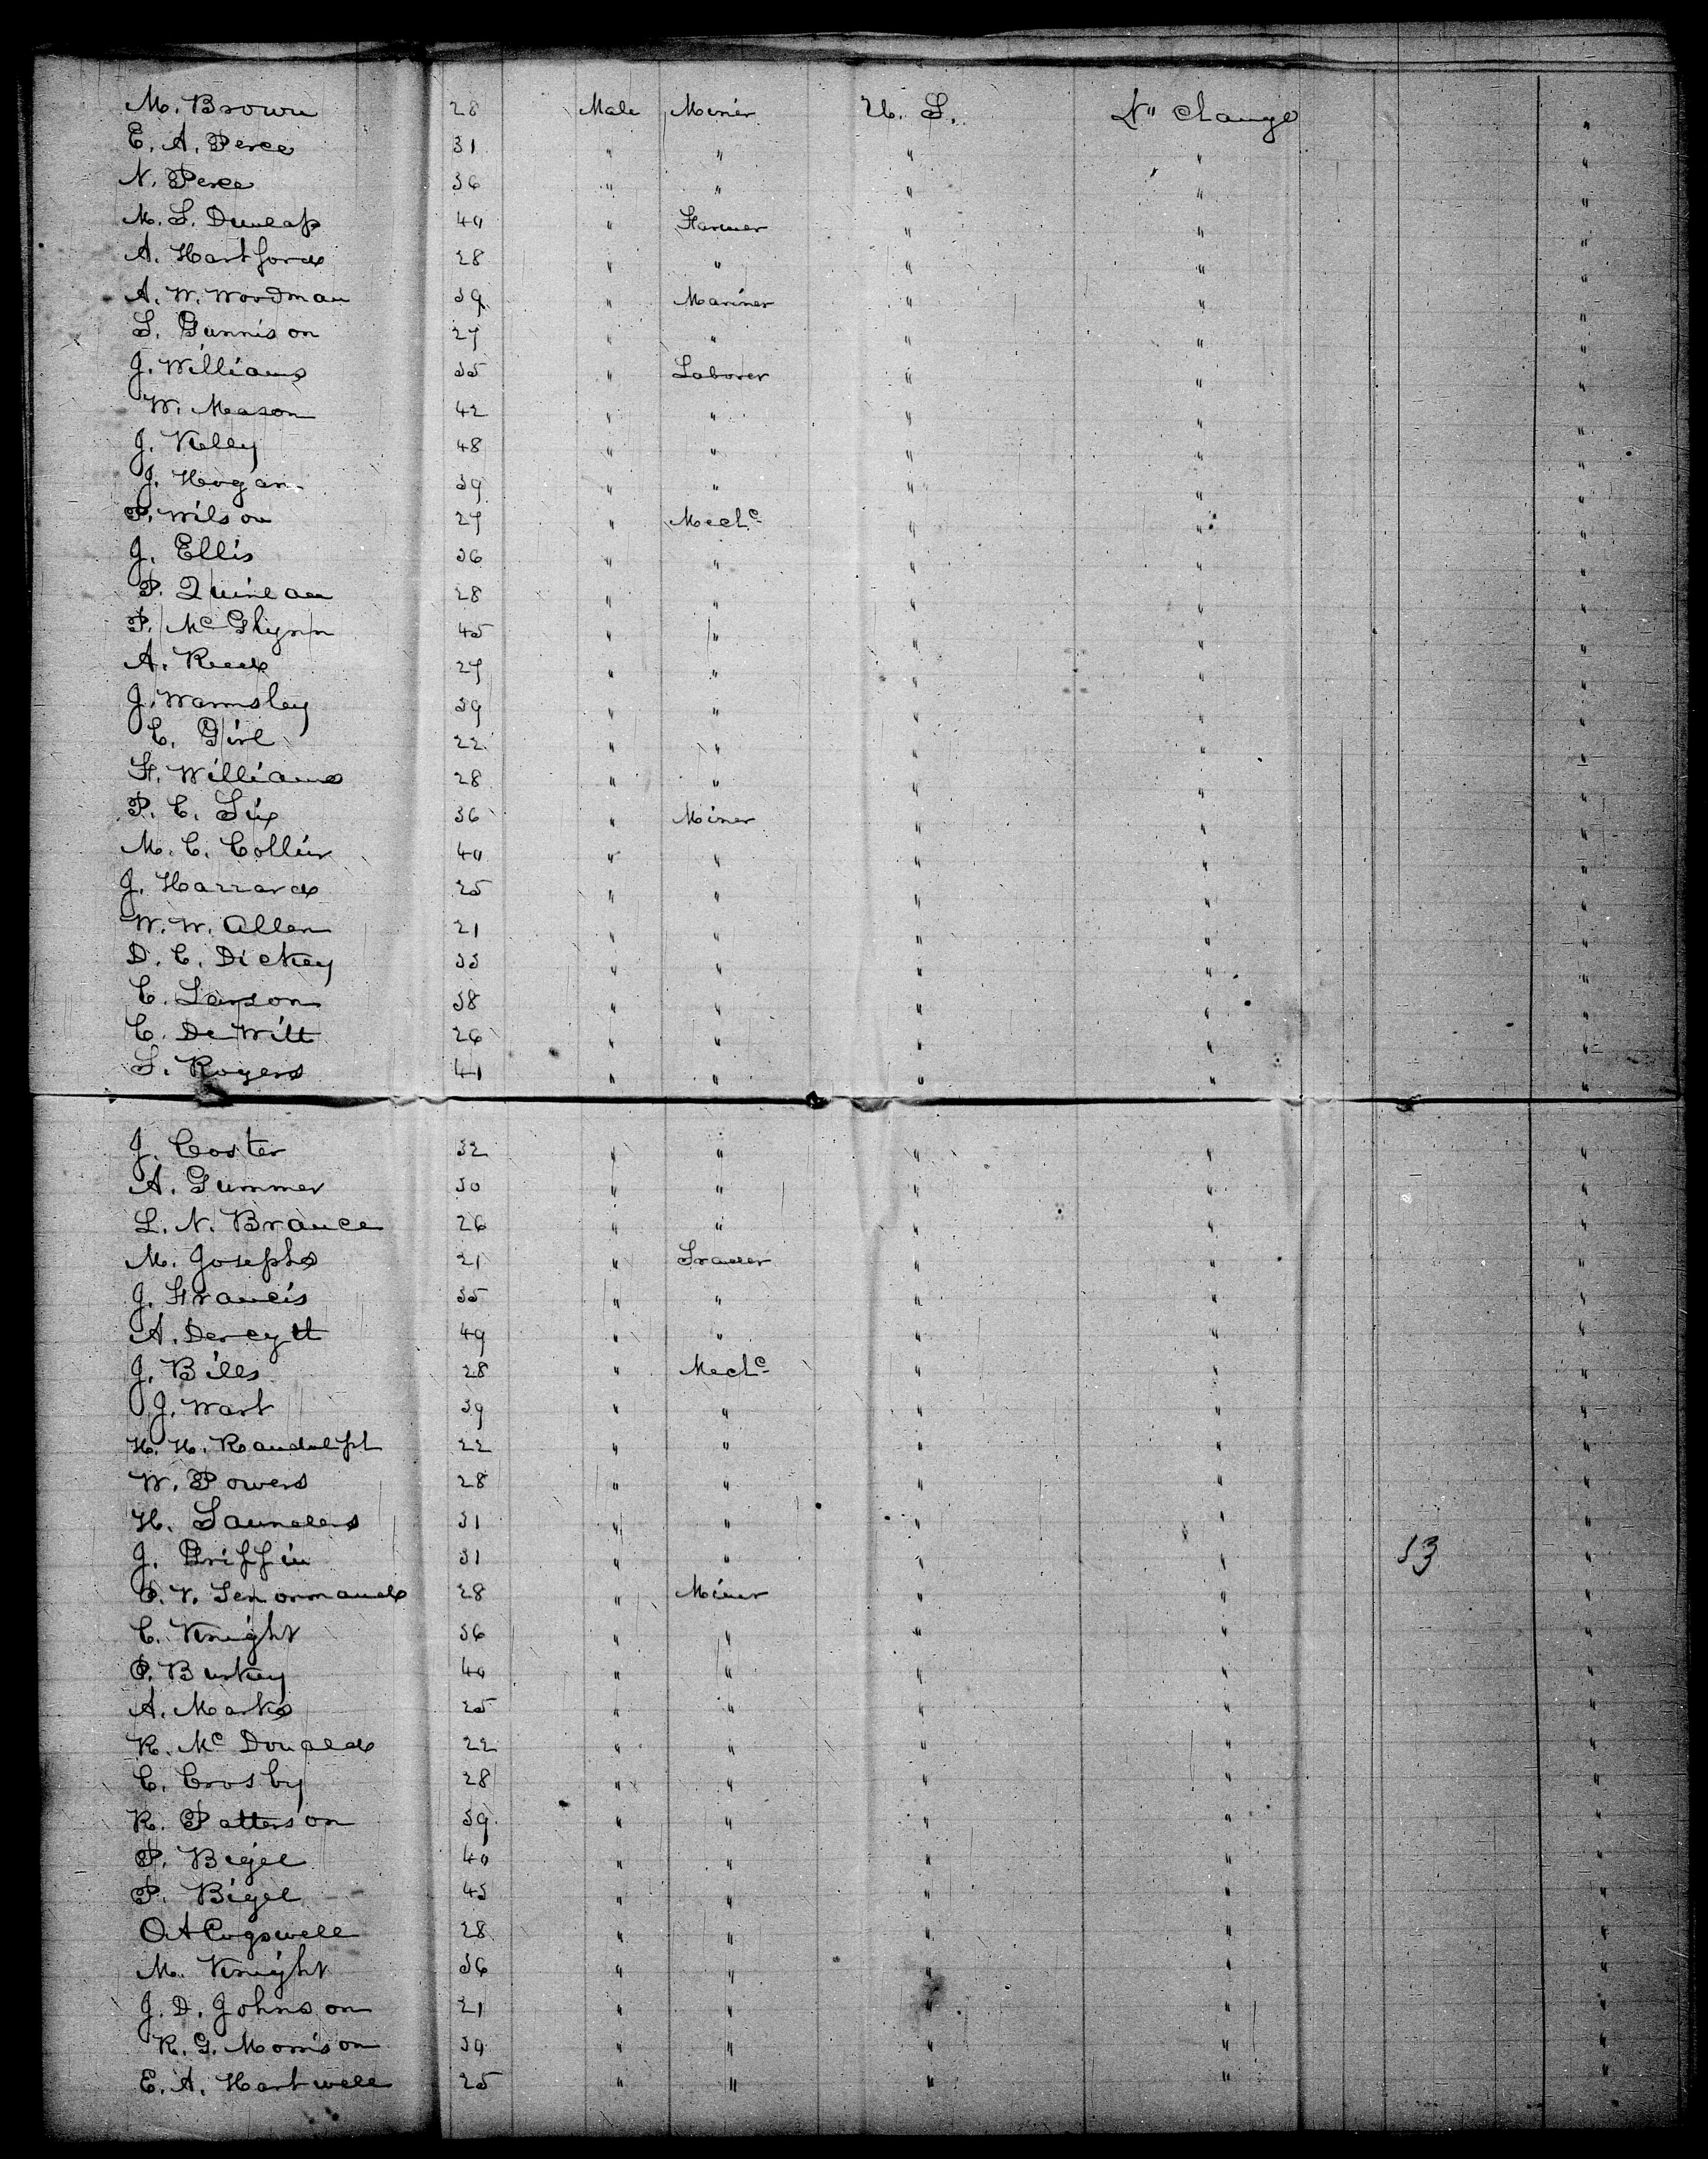 M. Brown 28 Male Miner U. S. No change "
E. A. Perce 31 " " " " "
N. Perce 36 " " " " "
M. S. Dunlap 40 " Farmer " " "
A. Hartford 28 " " " " "
A. W. Woodman 39 " Mariner " " "
S. Gunnison 27 " " " " "
J. Williams 35 " Laborer " " "
W. Mason 42 " " " " "
J. Kelly 48 " " " " "
J. Hogan 39 " " " " "
P. Wilson 27 " Mechc " " "
J. Ellis 36 " " " " "
P. Quinlan 28 " " " " "
P. McGlynn 45 " " " " "
A. Reed 27 " " " " "
J. Warmsley 39 " " " " "
C. Girl 22 " " " " "
F. Williams 28 " " " " "
P. C. Six 36 " Miner " " "
M. C. Collier 40 " " " " "
J. Hazzard 25 " " " " "
W. W. Allen 21 " " " " "
D. C. Dickey 33 " " " " "
C. Larson 38 " " " " "
C. De Witt 26 " " " " "
S. Rogers 41 " " " " "
J. Coster 32 " " " " "
A. Gummer 30 " " " " "
L. N. Brance 26 " " " " "
M. Josephs 21 " Trader " " "
J. Francis 35 " " " " "
A. 49 " " " " "
J. Bills 28 " Mechc " " "
J. Wart 39 " " " " "
H. H. Randolph 22 " " " " "
W. Powers 28 " " " " "
H. Saunders 31 " " " " "
J. Griffin 31 " " " " 53 "
P. V. Lenormand 28 " Miner " " "
C. Knight 36 " " " " "
P. Burkey 40 " " " " "
A. Marks 25 " " " " "
R. McDonald 22 " " " " "
C. Crosby 28 " " " " "
R. Patterson 39 " " " " "
P. Bigel 40 " " " " "
P. Bigel 43 " " " " "
O A Cogswell 28 " " " " "
M. Knight 36 " " " " "
J. D. Johnson 21 " " " " "
R. G. Morrison 39 " " " " "
E. A. Hartwell 25 " " " " "